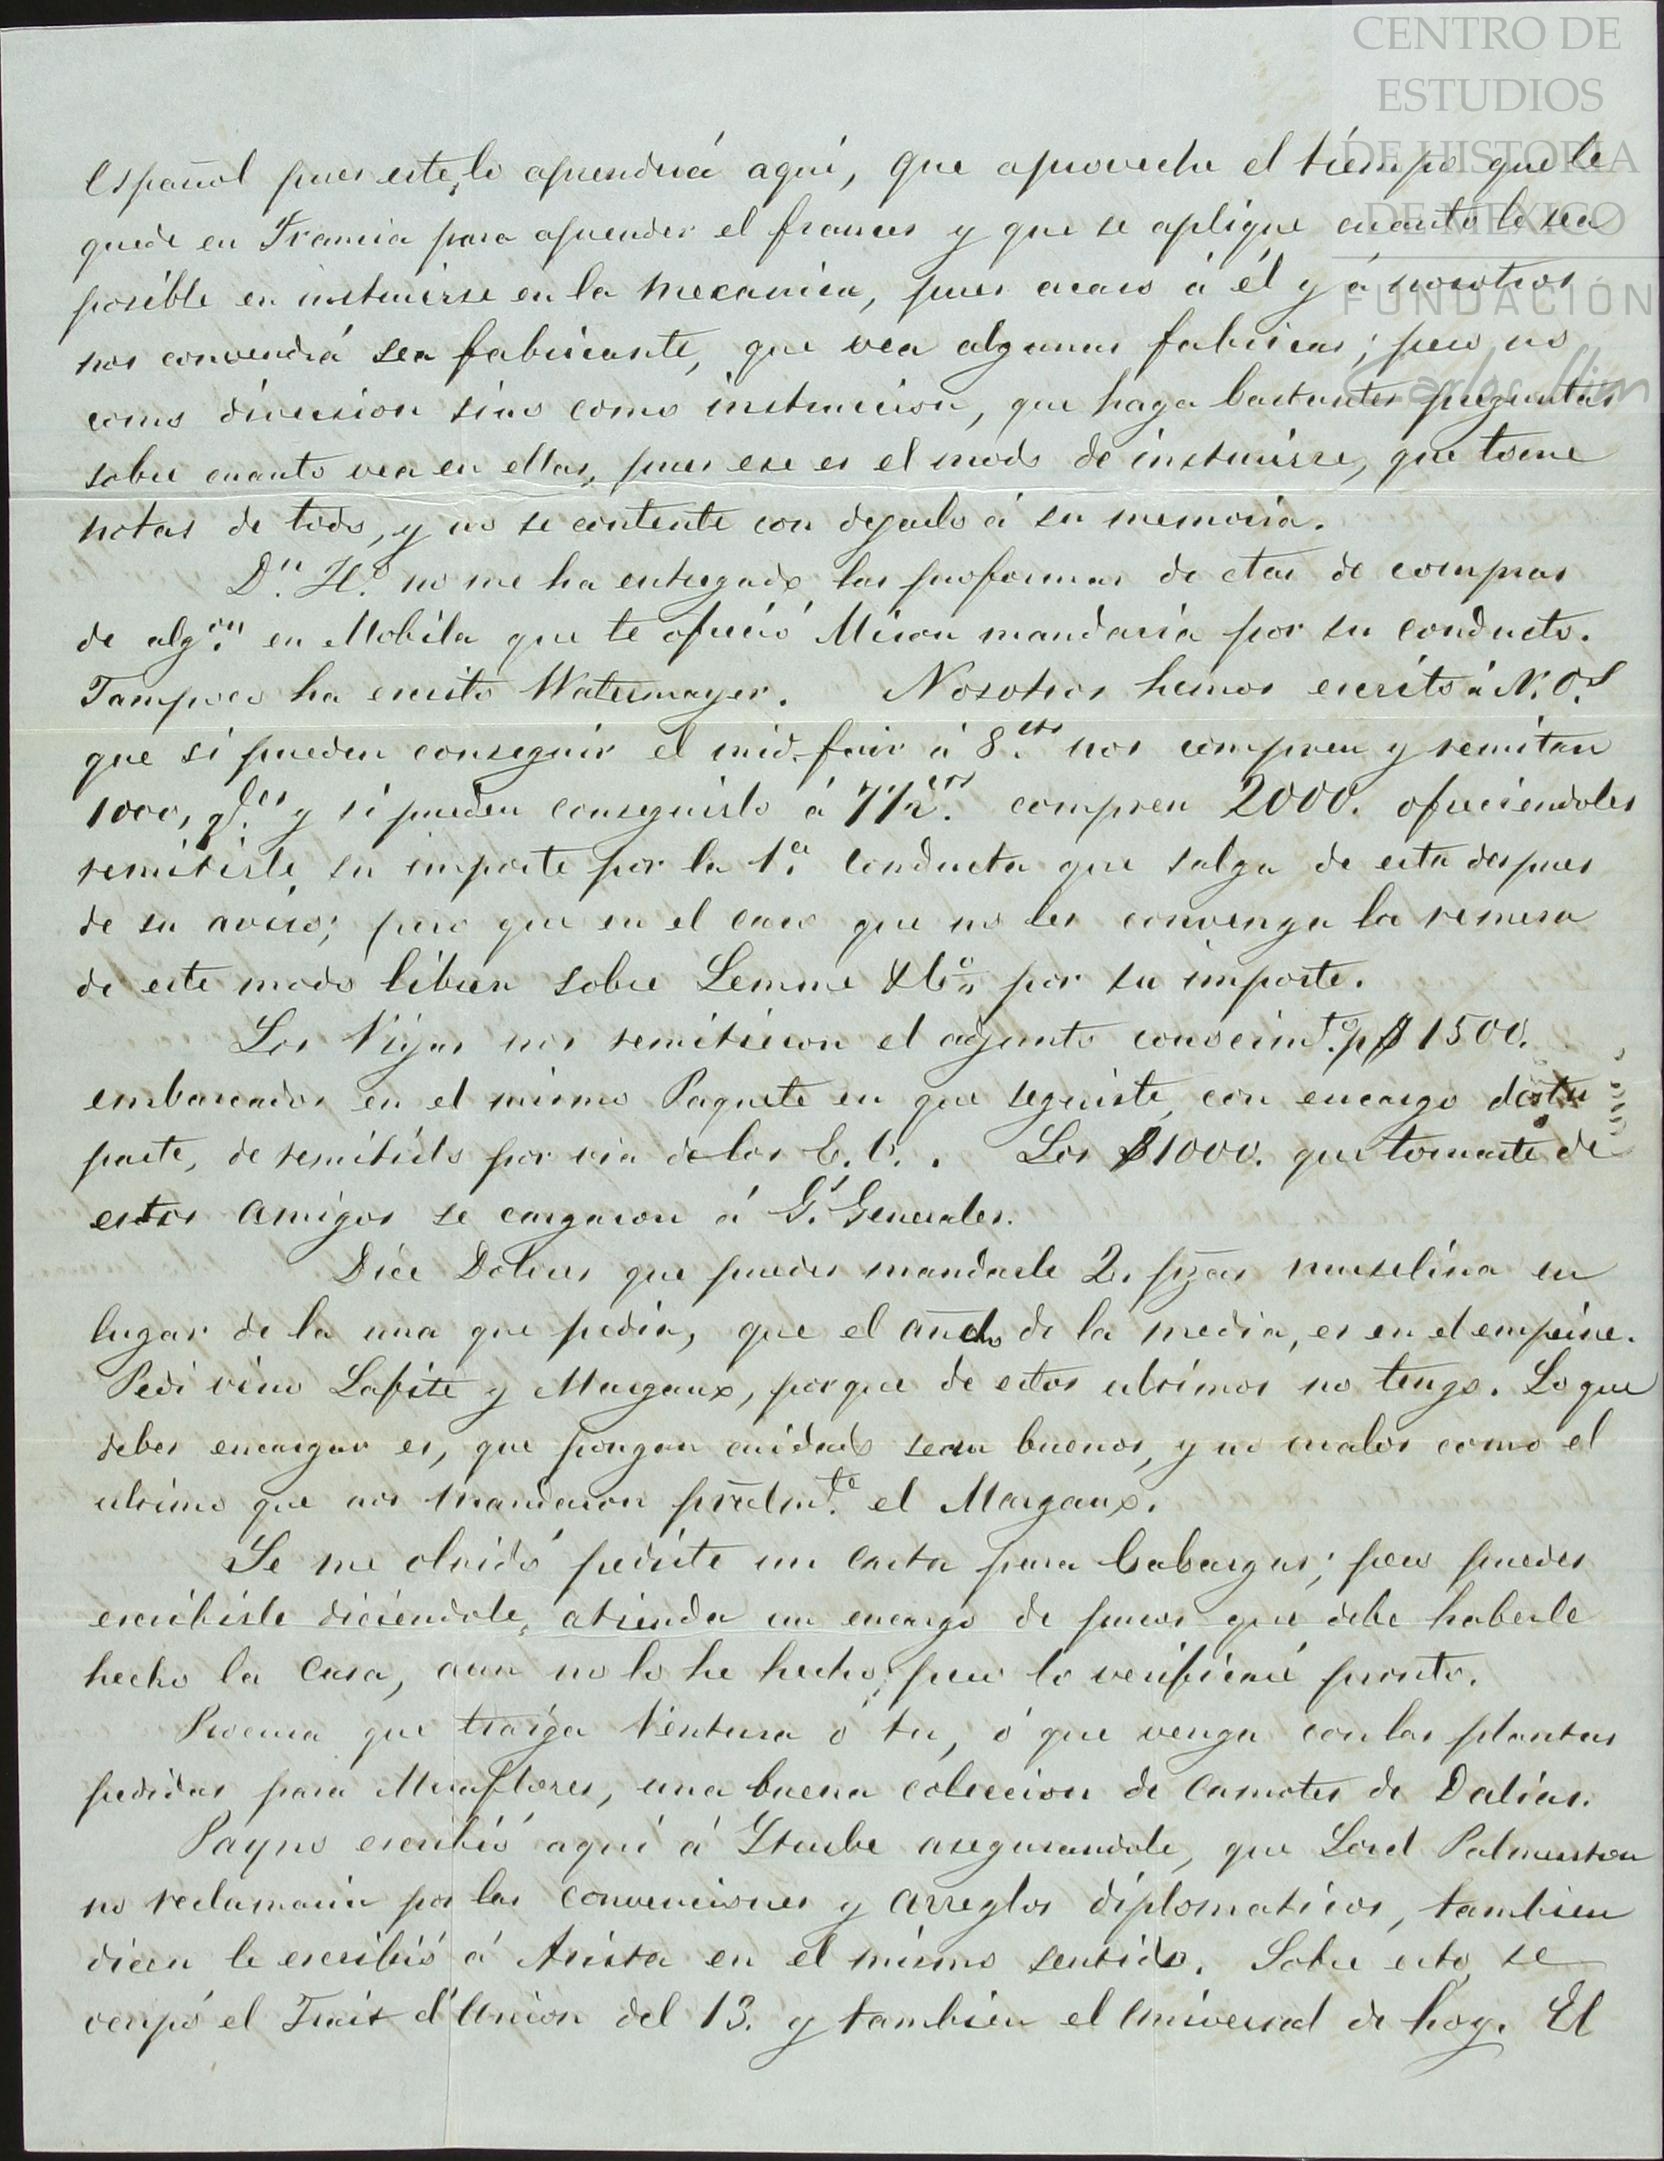 CENTRO DE
ESTUDIOS
DE HISTORIA
DE MÉXICO
FUNDACIÓN
Carlos Slim
Español pues este lo aprenderá aquí, que aproveche el tiempo que le
quede en Francia para aprender el frances y que se aplique cuanto le sea
posible en instruirse en la mecanica, pues acaso á él y á nosotros
nos convendrá sea fabricante, que vea algunas fabricas; pero no
como diversion sino como instruccion, que haga bastantes preguntas
sobre cuanto vea en ellas, pues ese es el modo de instruirse, que tome
notas de todo, y no se contente con dejarlo á su memoria.
Dn. H.o no me ha entregado las proformas de ctas de compras
de algon. en Mobila que te ofreció Miron mandaria por su conducto.
Tampoco ha escrito Watermayer. Nosotros hemos escrito á N. Os
que si pueden conseguir el mid. fair á 8 cts. nos compren y remitan
1000, qles. y si pueden conseguirlo á 7 1/2 cs. compren 2000. ofreciendoles
remitirle su importe por la 1.a conducta que salga de esta despues
de su aviso; pero que en el caso que no les convenga la remesa
de este modo libren sobre Lemme & Co. por su importe.
Los Viyas nos remitieron el adjunto conocimto. p $1500.
embarcados en el mismo Paquete en que seguiste, con encargo de tu
parte, de remitirlo por via de los E. U.. Los $1000. que tomaste de
estos amigos se cargaron á Gs. Generales.
Dice Dolores que puedes mandarle 2. pzas muselina en
lugar de la una que pedia, que el ancho de la media, es en el empeine.
Pedi vino Lafite y Margaux, porque de estos ultimos no tengo. Lo que
debes encargar es, que pongan cuidado sean buenos, y no malos como el
ultimo que nos mandaron pralmte. el Margaux.
Se me olvidó pedirte un carta para Cabargas; pero puedes
escribirle diciendole, atienda un encargo de que debe haberle
hecho la Casa, aun no lo he hecho; pero lo verificaré pronto.
Procura que traiga Ventura ó tu, ó que venga con las plantas
pedidas para Miraflores, una buena coleccion de Camotes de Dalias.
Payno escribió aquí á Yturbe asegurandole, que Lord Palmerston
no reclamaria por las convenciones y arreglos diplomaticos, tambien
dicen le escribió á Arista en el mismo sentido. Sobre esto se
ocupó el Trait d'Union del 13. y tambien el Universal de hoy. El